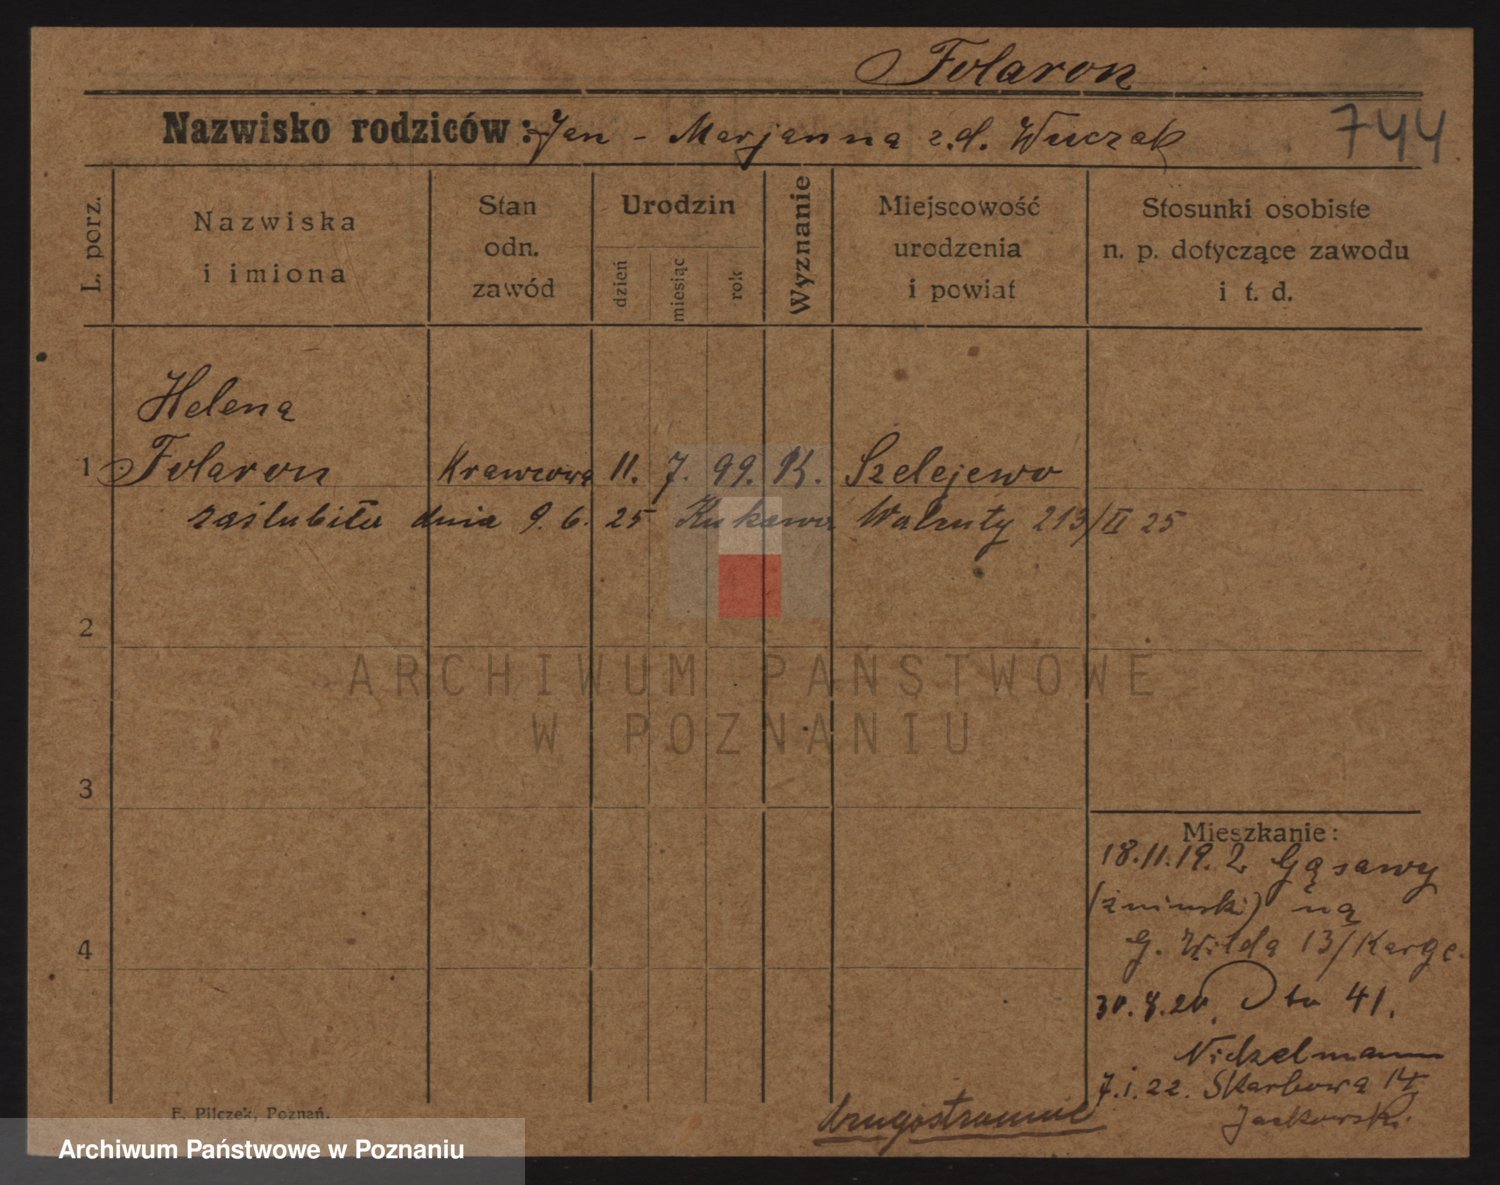 Folaron
Nazwisko rodziców: Jan - Marjanna z.d. Wuczak
744
L. porz.
Nazwiska
i imiona
Stan
odn.
zawód
Urodzin
dzień
miesiąc
rok
Wyznanie
Miejscowość
urodzenia
i powiat
Stosunki osobiste
n. p. dotyczące zawodu
i t. d.
Helena
1 Folaron Krawcowa 11. 7. 99. K. Szelejewo
zaślubiła dnia 9. 6. 25 Walenty 213/II 25
2
ARCHIWUM PAŃSTWOWE
W POZNANIU
3
4
Mieszkanie:
18.11.19. z Gąsawy
(żniński) na
G. Wilda 13/Karge.
30.8.20. 41.
Nickelmann
7.1.22. Skarbowa 14
Jackowski
drugostronnie
F. Pilczek, Poznań.
Archiwum Państwowe w Poznaniu